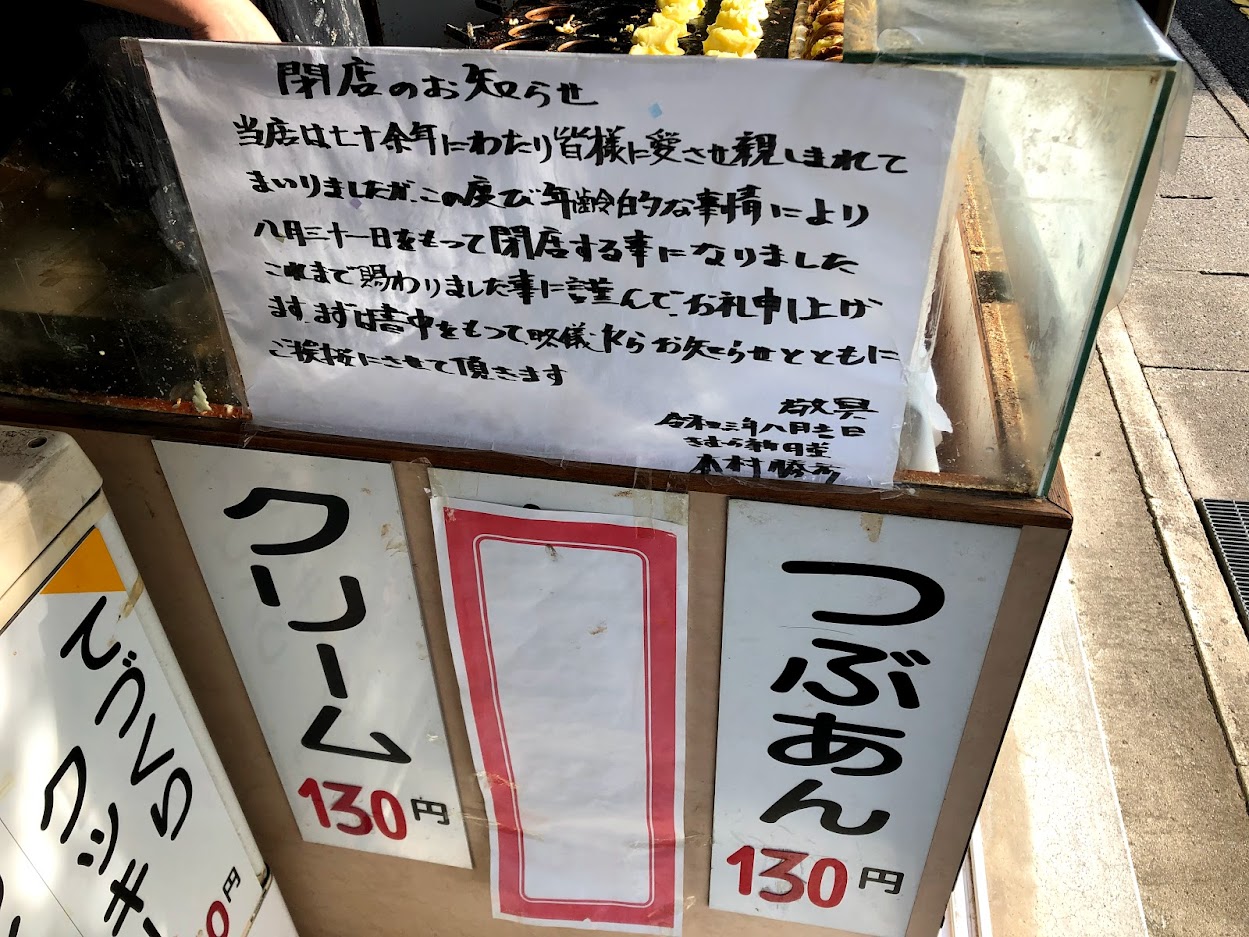 閉店のお知らせ
当店は七十余年にわたり皆様に愛させ親しまれて
まいりましたが、この度び年齢的な事情により
八月三十一日をもって閉店する事になりました
これまで賜わりました事に謹んで、お礼申し上げ
ます、まずは書中をもって、略儀乍らお知らせとともに
ご挨拶にさせて頂きます
敬具
令和三年八月吉日
きむら
木村
クリーム
130円
つぶあん
130円
どうぶつ
クッキ
0円